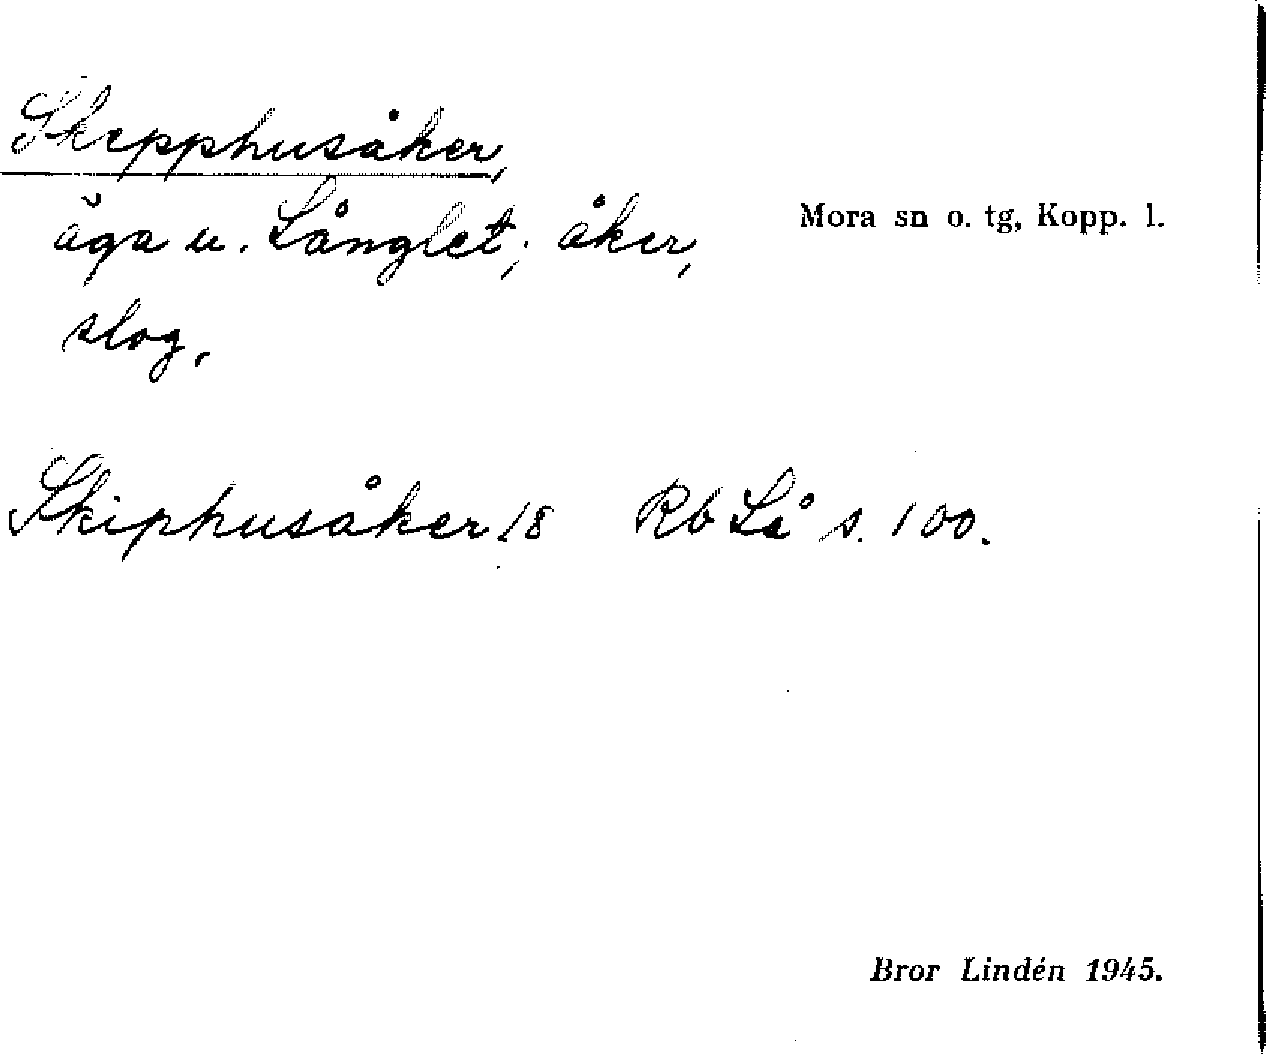 Skepphusåker,
äga u. Långlet; åker,
slog.
Mora sn o. tg, Kopp. l.
Skiphusåker 18 Rb Lå s. 100.
Bror Lindén 1945.